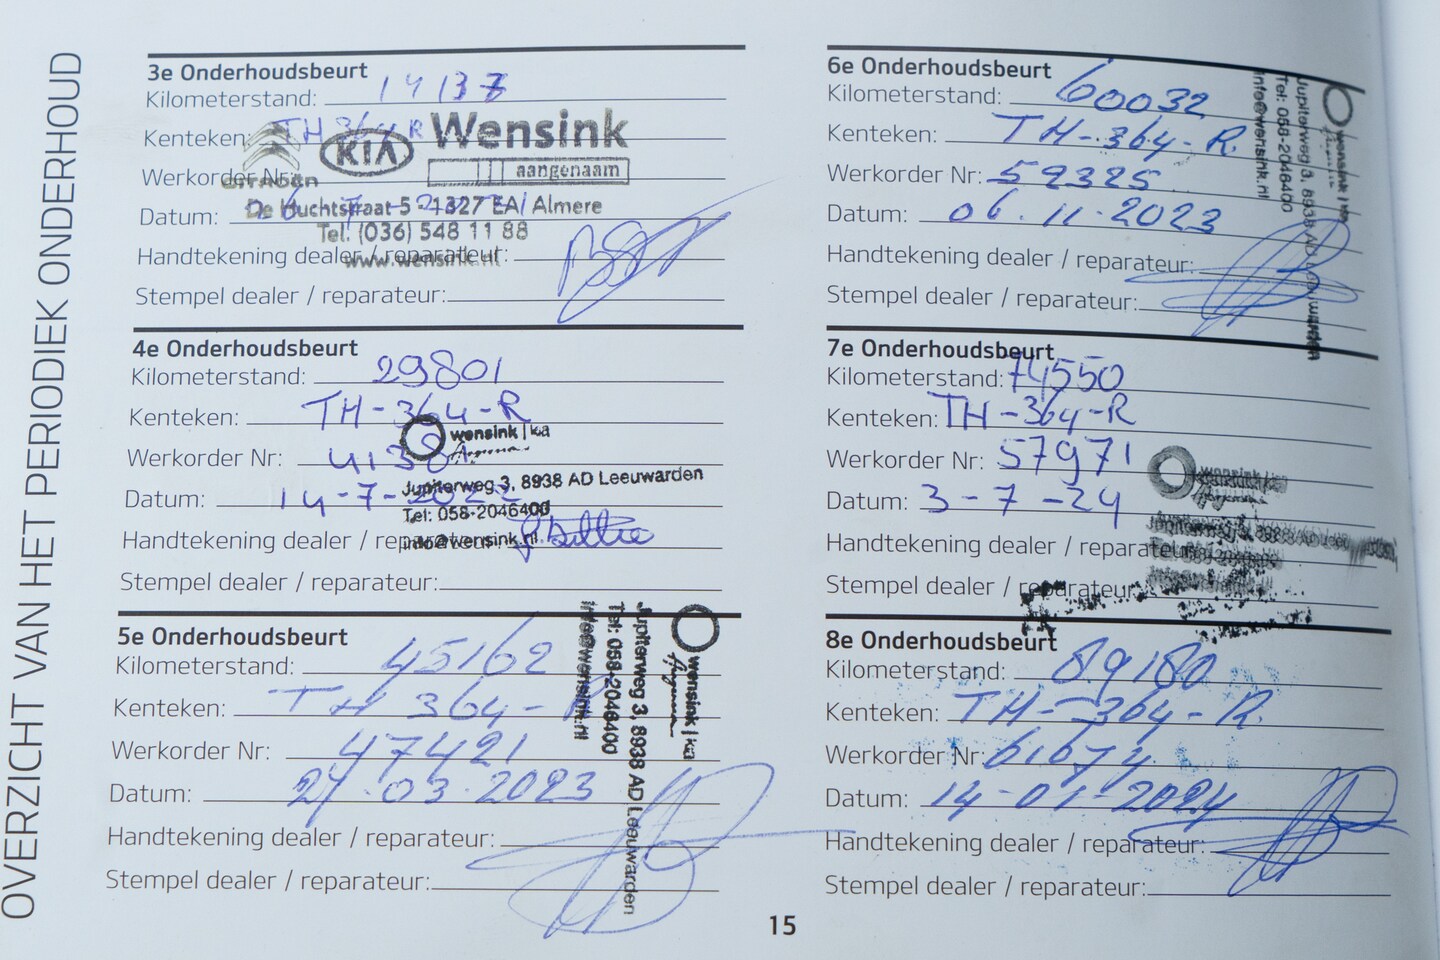 OVERZICHT VAN HET PERIODIEK ONDERHOUD
3e Onderhoudsbeurt
Kilometerstand: 14137
Kenteken: TH 364 R
Werkorder Nr:
Datum:
Handtekening dealer / reparateur:
Stempel dealer / reparateur:
CITROËN
KIA
Wensink
aangenaam
De Huchtstraat 5 1327 EA Almere
Tel. (036) 548 11 88
www.wensink.nl
4e Onderhoudsbeurt
Kilometerstand: 29801
Kenteken: TH-364-R
Werkorder Nr:
Datum: 14-7-2022
Handtekening dealer / reparateur:
Stempel dealer / reparateur:
wensink | kia
Jupiterweg 3, 8938 AD Leeuwarden
Tel: 058-2046400
info@wensink.nl
5e Onderhoudsbeurt
Kilometerstand: 45162
Kenteken: TH 364-R
Werkorder Nr: 47421
Datum: 27.03.2023
Handtekening dealer / reparateur:
Stempel dealer / reparateur:
wensink | kia
Aangenaam
Jupiterweg 3, 8938 AD Leeuwarden
Tel: 058-2046400
info@wensink.nl
6e Onderhoudsbeurt
Kilometerstand: 60032
Kenteken: TH-364-R.
Werkorder Nr: 52325
Datum: 06.11.2023
Handtekening dealer / reparateur:
Stempel dealer / reparateur:
wensink | kia
Jupiterweg 3, 8938 AD Leeuwarden
Tel: 058-2046400
info@wensink.nl
7e Onderhoudsbeurt
Kilometerstand: 74550
Kenteken: TH-364-R
Werkorder Nr: 57971
Datum: 3-7-24
Handtekening dealer / reparateur:
Stempel dealer / reparateur:
wensink | kia
8e Onderhoudsbeurt
Kilometerstand: 89180
Kenteken: TH-364-R.
Werkorder Nr:
Datum: 14-01-2024
Handtekening dealer / reparateur:
Stempel dealer / reparateur:
15